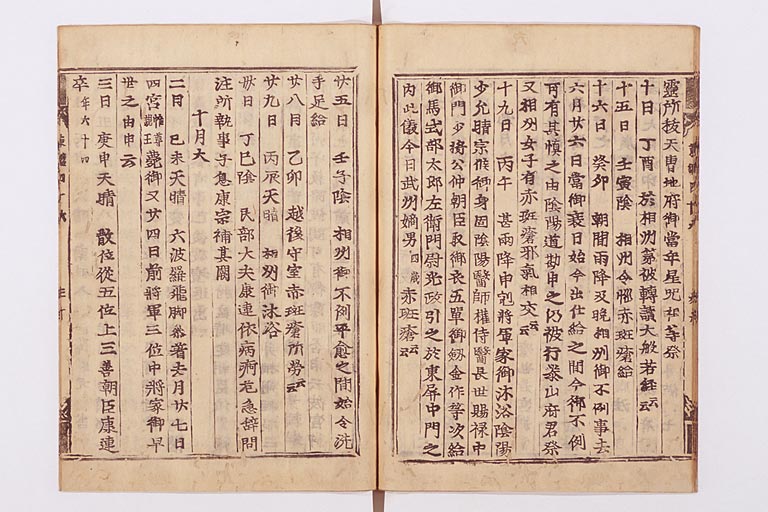 靈所祓天曹地府御當年星咒咀等祭
十日　丁酉　於相州第被轉讀大般若経云云
十五日　壬寅陰　相州令惱赤斑瘡給
十六日　癸卯　朝間雨降及晩相州御不例事去
六月廿六日當御衰日始令出仕給之間今御不例
可有其慎之由陰陽道勘申之仍被行泰山府君祭
又相州女子有赤斑瘡邪氣相交云云
十九日　丙午　甚雨降申尅將軍家御沐浴陰陽
少允晴宗候御身固陰陽醫師權侍醫長世賜禄中
御門少將公仲朝臣取御衣五單御劔金作等次給
御馬式部太郎左衛門尉光政引之於東屏中門之
内此儀今日武州嫡男四歳赤斑瘡云云
廿五日　壬子陰　相州御不例平愈之間始令洗
手足給
廿八日　乙卯　越後守室赤斑瘡所勞云云
廿九日　丙辰天晴　相州御沐浴
卅日　丁巳陰　民部大夫康連依病痾危急辞問
注所執事子息康宗補其闕
十月大
二日　己未天晴　六波羅飛脚參著去月廿七日
四宮雅尊親王薨御又廿四日前將軍三位中將家御早
世之由申云云
三日　庚申天晴　散位從五位上三善朝臣康連
卒年六十四